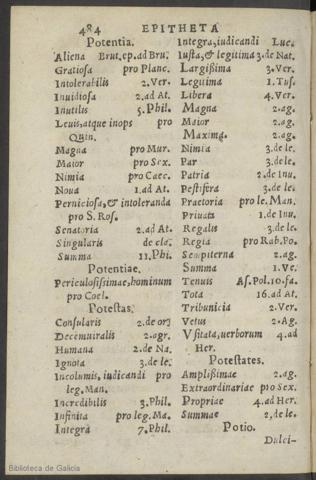 484 EPITHETA
Potentia.
Aliena Brut. ep. ad Bru.
Gratiosa pro Planc.
Intolerabilis 2. Ver.
Inuidiosa 2. ad At.
Inutilis 5. Phil.
Leuis, atque inops pro
Quin.
Magna pro Mur.
Maior pro Sex.
Nimia pro Caec.
Noua 1. ad At.
Perniciosa, & intoleranda
pro S. Ros.
Senatoria 2. ad At.
Singularis de cla.
Summa 11. Phi.
Potentiae.
Periculosissimae, hominum
pro Coel.
Potestas.
Consularis 2. de or
Decemuiralis 2. agr.
Humana 2. de Na.
Ignota 3. de le.
Incolumis, iudicandi pro
leg. Man.
Incredibilis 3. Phil.
Infinita pro leg. Ma.
Integra 7. Phil.
Integra, iudicandi Luc.
Iusta, & legitima 3. de Nat.
Largissima 3. Ver.
Legitima 1. Tus.
Libera 4. Ver.
Magna 2. ag.
Maior 2. ag.
Maxima. 2. ag.
Nimia 3. de le.
Par 3. de le.
Patria 2. de Inu.
Pestifera 3. de le.
Praetoria pro le. Man.
Priuata 1. de Inu.
Regalis 3. de le.
Regia pro Rab. Po.
Sempiterna 2. ag.
Summa 1. Ve.
Tenuis As. Pol. 10. fa.
Tota 16. ad At.
Tribunicia 2. Ver.
Vetus 2. Ag.
Vsitata, uerborum 4. ad
Her.
Potestates.
Amplissimae 2. ag.
Extraordinariae pro Sex.
Propriae 4. ad Her.
Summae 2. de le.
Potio.
Dulci-
Biblioteca de Galicia